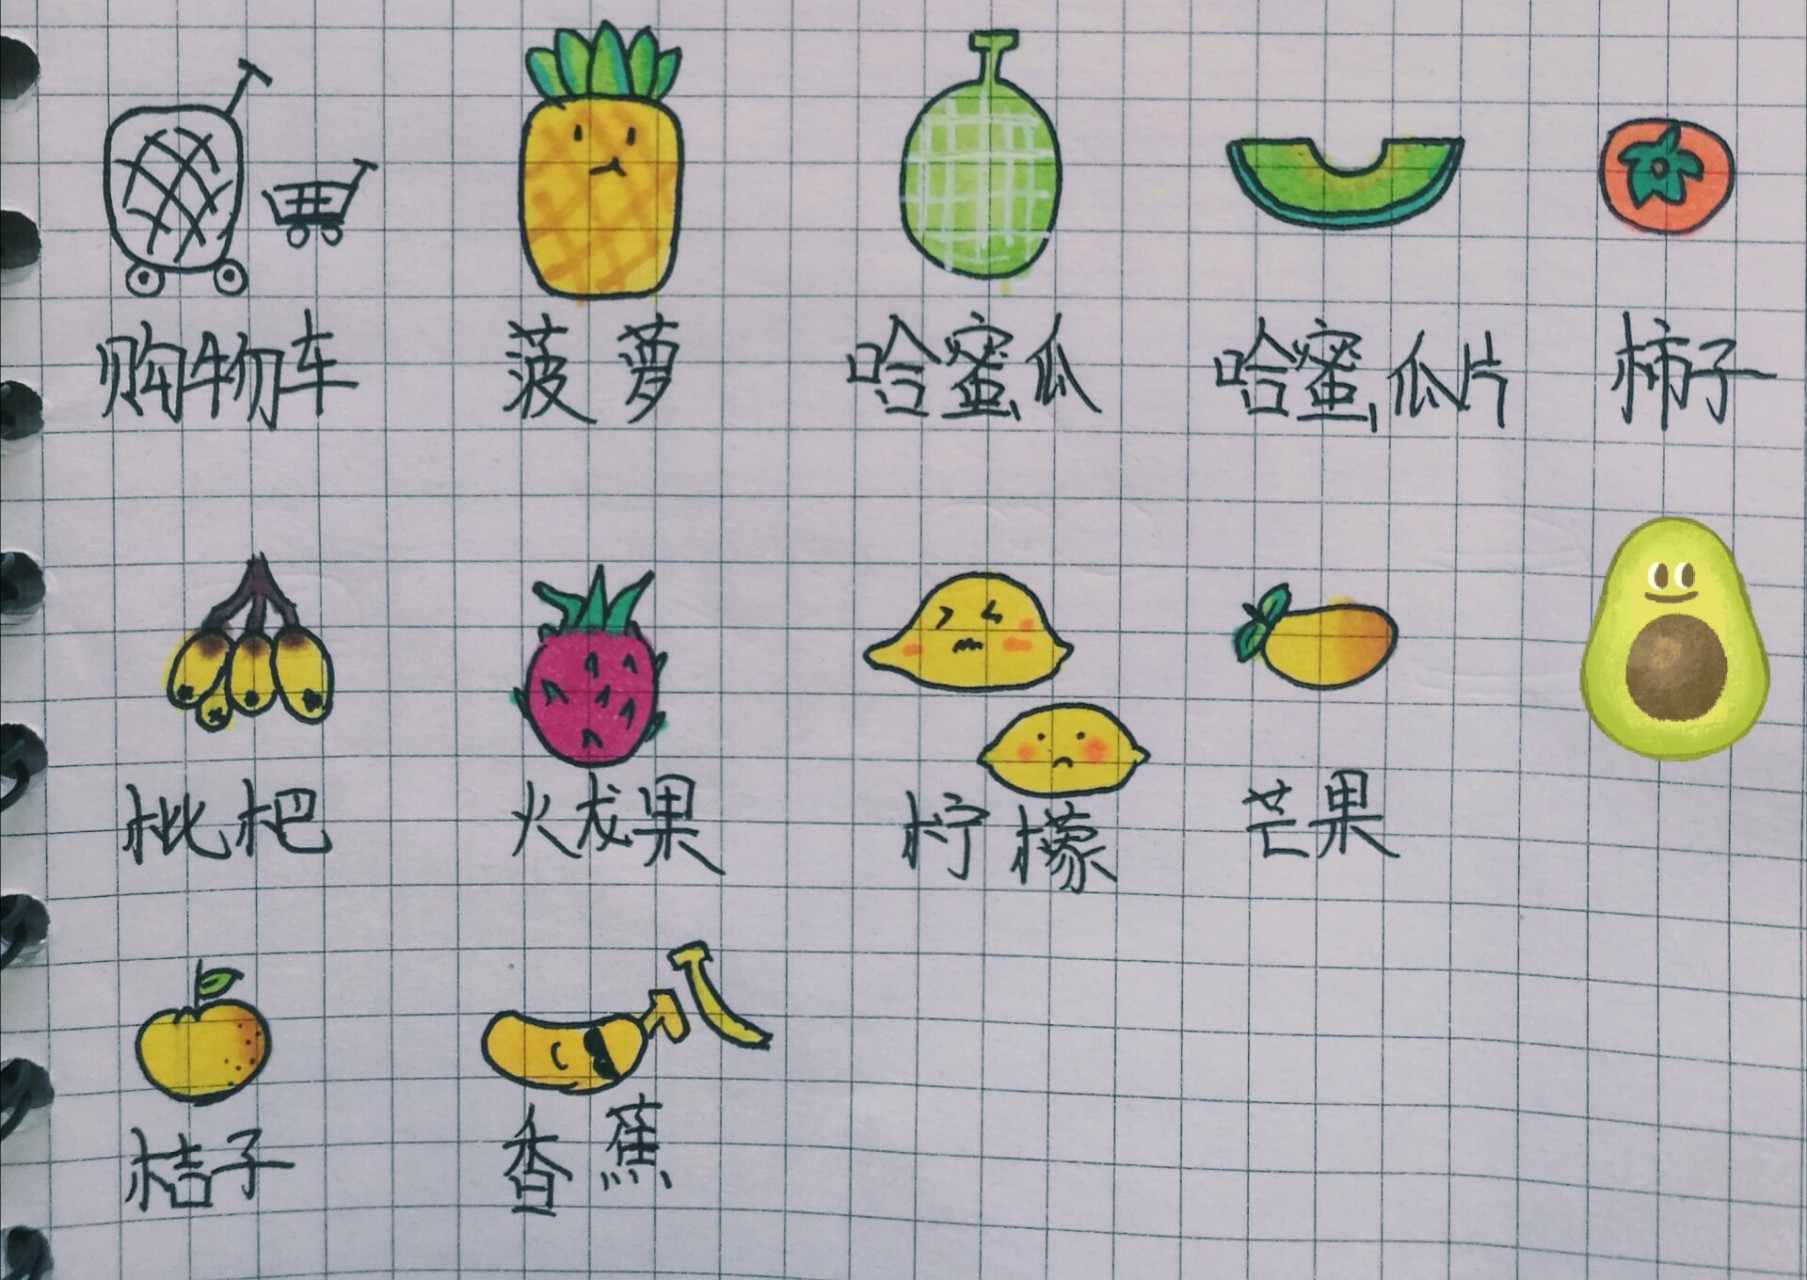 购物车 菠萝 哈蜜瓜 哈蜜瓜片 柿子
枇杷 火龙果 柠檬 芒果
桔子 香蕉